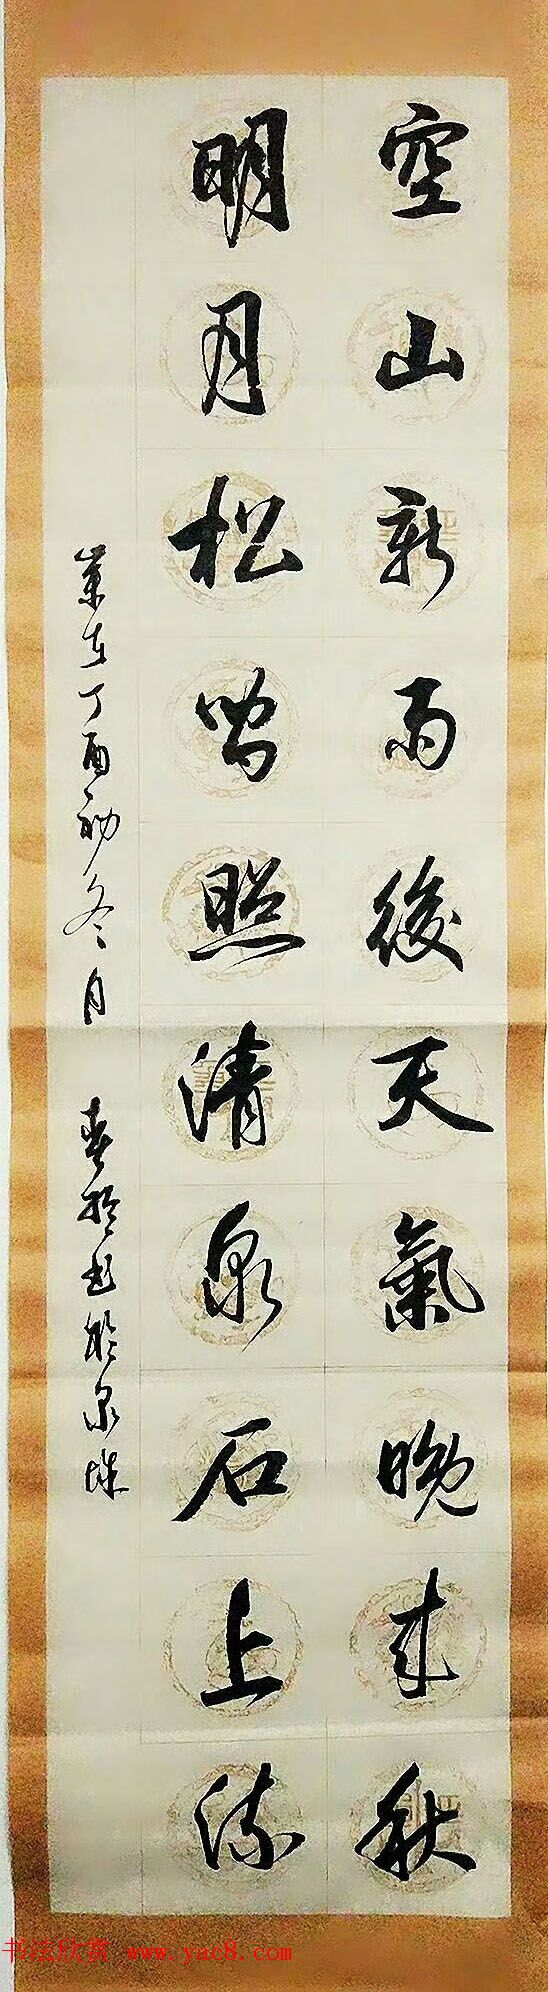 空山新雨後天氣晚来秋
明月松间照清泉石上流
歲在丁酉初冬月 春於书於泉城
书法欣赏 www.yac8.com